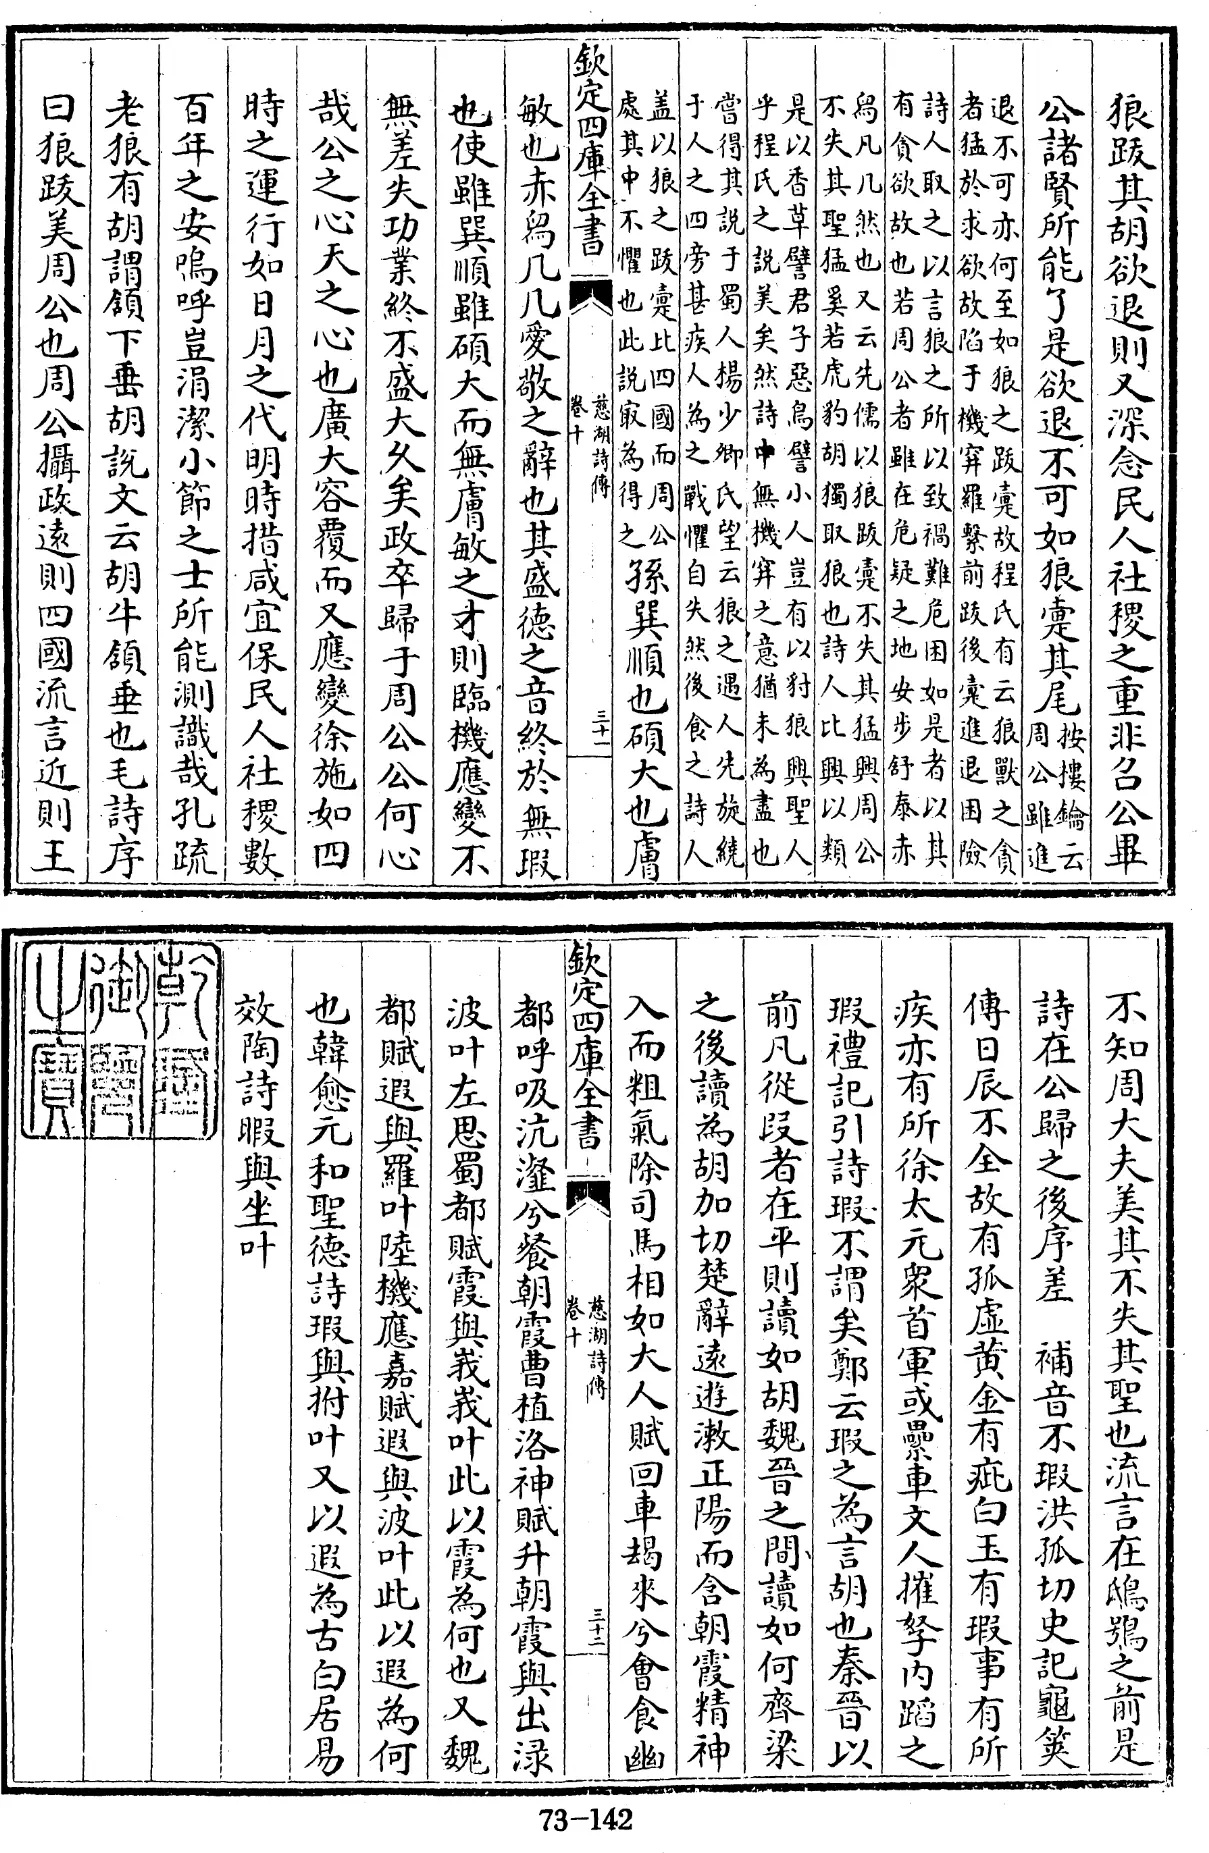 狼跋其胡欲退則又深念民人社稷之重非召公畢
公諸賢所能了是欲退不可如狼疐其尾按摟鑰云
周公雖進
退不可亦何至如狼之跋疐故程氏有云狼獸之貪
者猛於求欲故陷于機穽羅縶前跋後疐進退困險
詩人取之以言狼之所以致禍難危困如是者以其
有貪欲故也若周公者雖在危疑之地安步舒泰赤
舄凡几然也又云先儒以狼跋疐不失其猛興周公
不失其聖猛奚若虎豹胡獨取狼也詩人比興以類
是以香草譬君子惡鳥譬小人豈有以豺狼興聖人
乎程氏之說美矣然詩中無機穽之意猶未為盡也
嘗得其說于蜀人楊少卿氏望云狼之遇人先旋繞
于人之四旁甚疾人為之戰懼自失然後食之詩人
盖以狼之跋疐比四國而周公
處其中不懼也此說㝡為得之孫巽順也碩大也膚
欽定四庫全書
慈湖詩傳
卷十
三十一
敏也赤舄几几愛敬之辭也其盛德之音終於無瑕
也使雖巽順雖碩大而無膚敏之才則臨機應變不
無差失功業終不盛大久矣政卒歸于周公公何心
哉公之心天之心也廣大容覆而又應變徐施如四
時之運行如日月之代明時措咸宜保民人社稷數
百年之安嗚呼豈涓潔小節之士所能測識哉孔疏
老狼有胡謂頷下垂胡説文云胡牛頷垂也毛詩序
曰狼跋美周公也周公攝政遠則四國流言近則王
不知周大夫美其不失其聖也流言在鴟鴞之前是
詩在公歸之後序差　補音不瑕洪孤切史記龜筴
傳日辰不全故有孤虛黄金有疵白玉有瑕事有所
疾亦有所徐太元衆首軍或纍車文人摧孥内蹈之
瑕禮記引詩瑕不謂矣鄭云瑕之為言胡也秦晉以
前凡從叚者在平則讀如胡魏晉之間讀如何齊梁
之後讀為胡加切楚辭遠遊漱正陽而含朝霞精神
入而粗氣除司馬相如大人賦回車朅來兮會食幽
欽定四庫全書
慈湖詩傳
卷十
三十二
都呼吸沆瀣兮餐朝霞曹植洛神賦升朝霞與出渌
波叶左思蜀都賦霞與峩峩叶此以霞為何也又魏
都賦遐與羅叶陸機應嘉賦遐與波叶此以遐為何
也韓愈元和聖德詩瑕與拊叶又以遐為古白居易
效陶詩暇與坐叶
乾隆
御覽
之寶
73-142